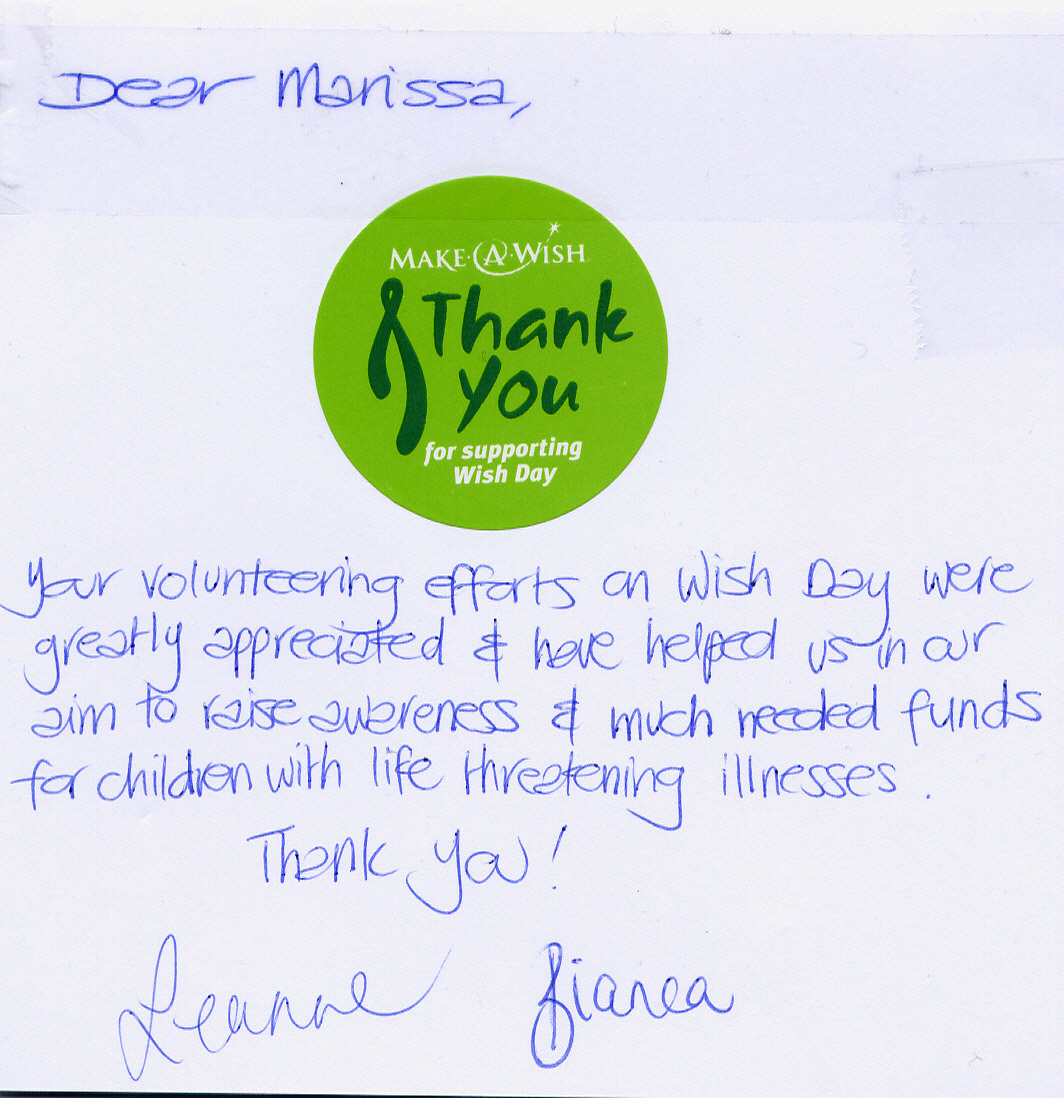 Dear Marissa,
MAKE·A·WISH
Thank
you
for supporting
Wish Day
Your volunteering efforts on Wish Day were
greatly appreciated & have helped us in our
aim to raise awareness & much needed funds
for children with life threatening illnesses.
Thank you!
Leanne Bianca